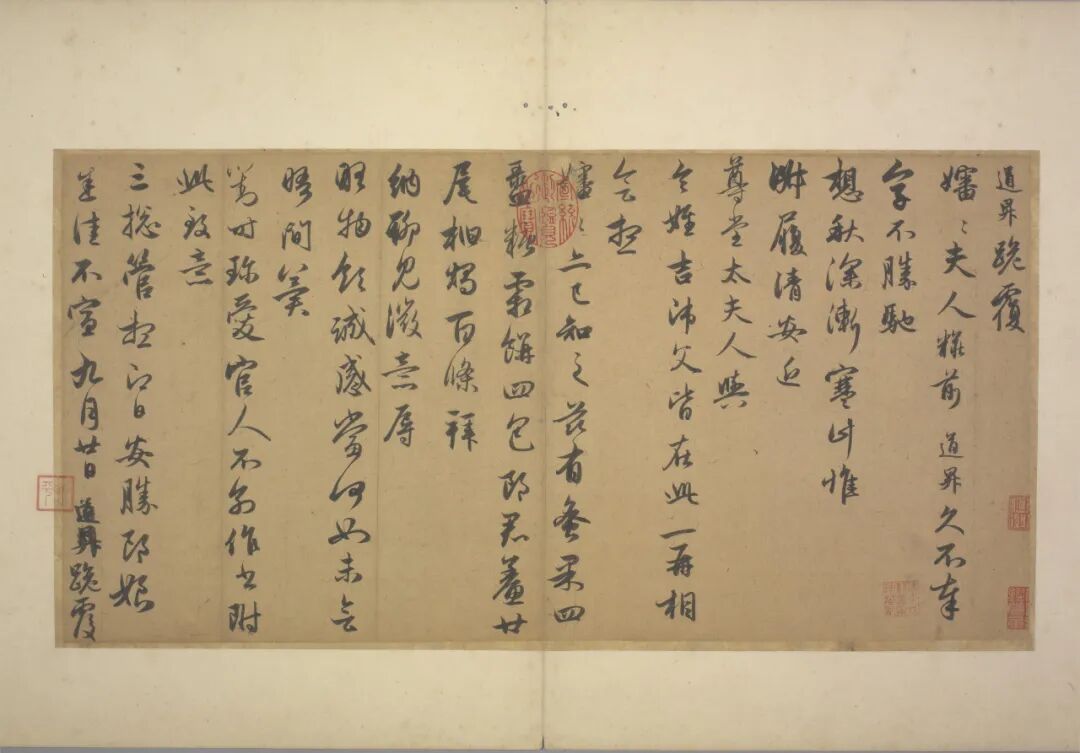 道昇跪覆
嬸〻夫人糚前道昇久不奉
字不勝馳
想秋深漸寒計惟
淑履清安近
尊堂太夫人與
令姪吉師父皆在此一再相
會想
嬸〻亦已知之茲有蜜果四
盝糖霜餅四包郎君鯗廿
尾柏燭百條拜
納聊見微意辱
貺物領誠感當何如未會
晤間冀
對時珍愛官人不别作書附
此致意
三總管想即日安勝郎娘
悉佳不宣九月廿日道昇跪覆